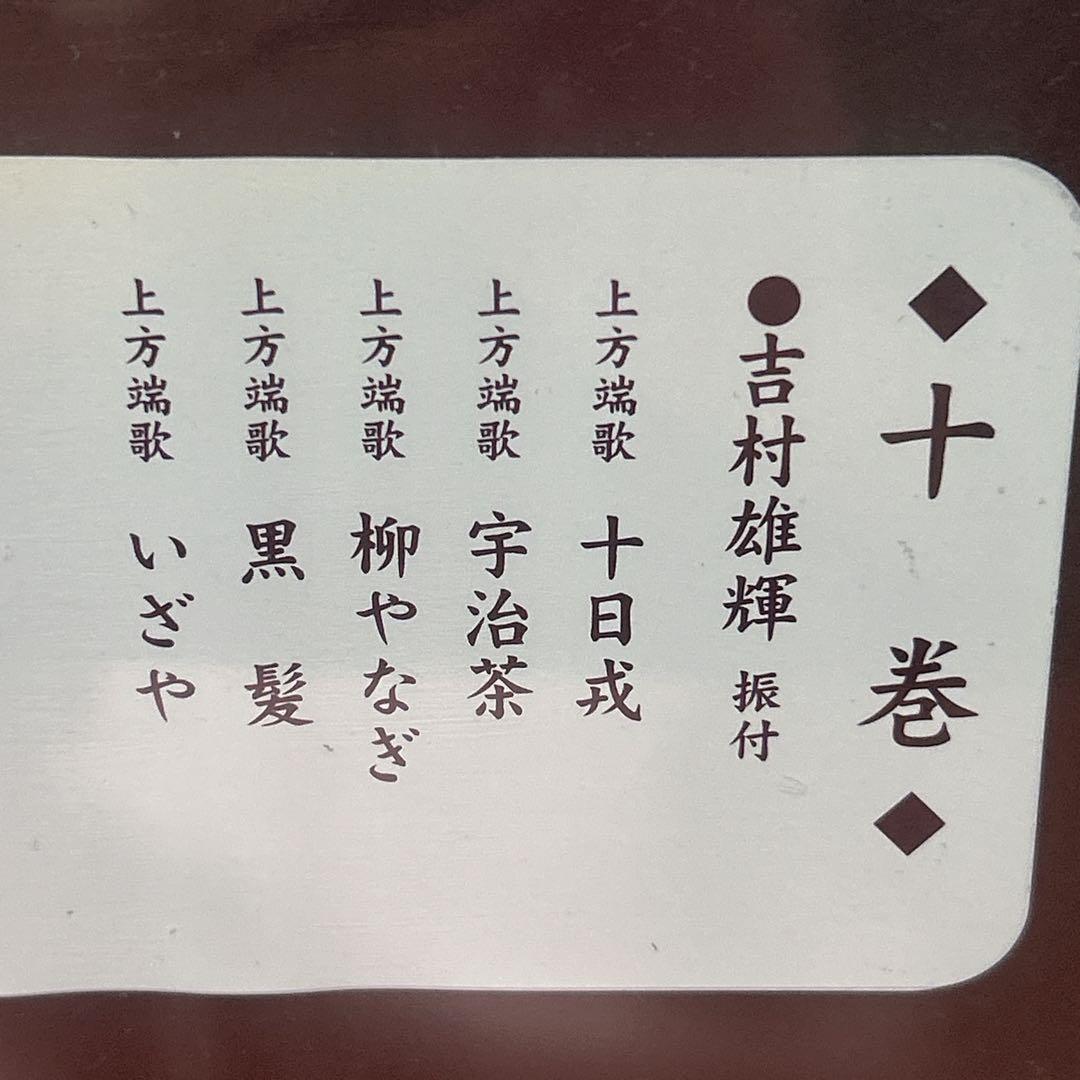 ◆十巻◆
●吉村雄輝 振付
上方端歌 十日戎
上方端歌 宇治茶
上方端歌 柳やなぎ
上方端歌 黒髪
上方端歌 いざや